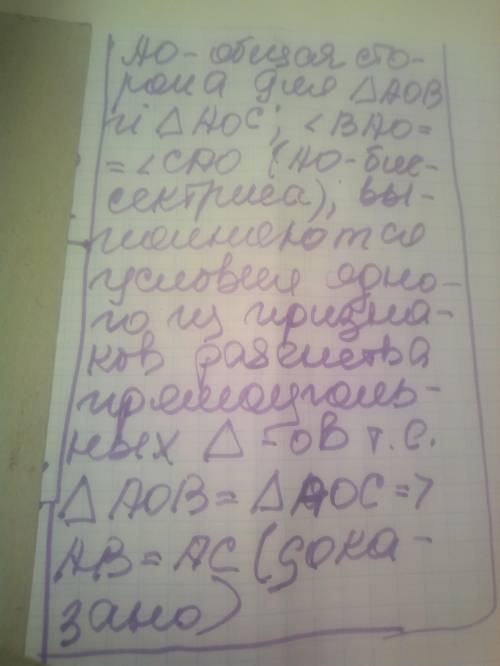 AO - общая сто-
рона для ΔAOB
и ΔAOC; <BAO=
=<CAO (AO-бис-
сектриса); вы-
полняются
условия одно-
го из призна-
ков равенства
прямоуголь-
ных Δ-ов т.е.
ΔAOB=ΔAOC=>
AB=AC (дока-
зано)